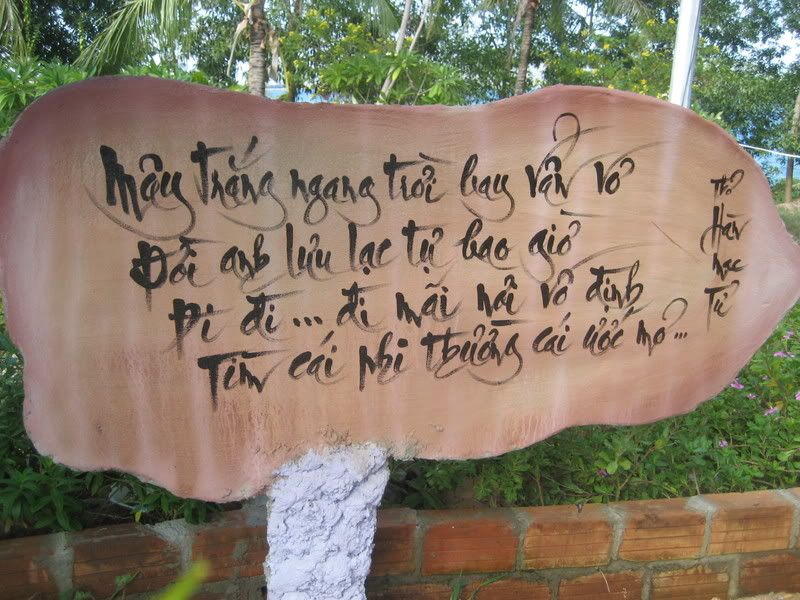 Mây trắng ngang trời bay vẩn vơ
Đời anh lưu lạc tự bao giờ
Đi đi... đi mãi nơi vô định
Tìm cái phi thường cái ước mơ...
Thơ
Hàn
mạc
Tử